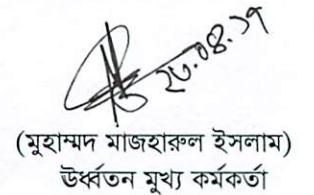 ২৩.০৪.১৭
(মুহাম্মদ মাজহারুল ইসলাম)
ঊর্ধ্বতন মুখ্য কর্মকর্তা